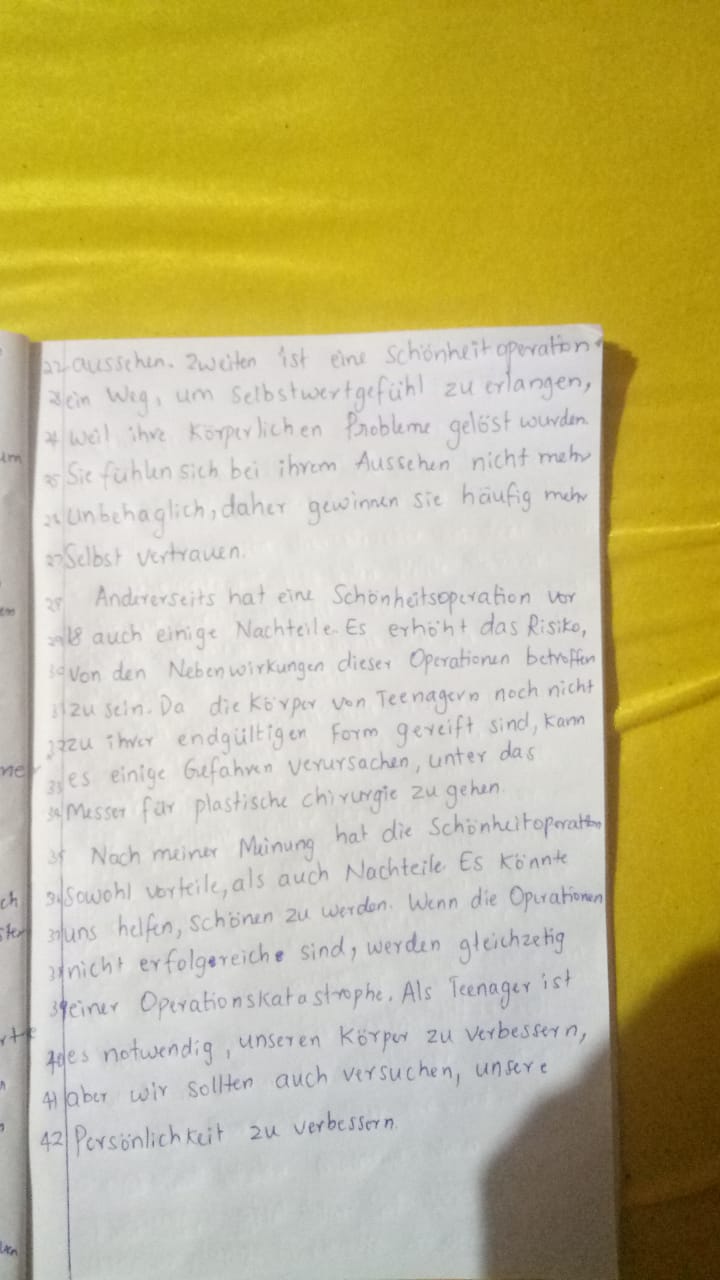 22 aussehen. Zweiten ist eine Schönheitoperation
23 ein Weg, um Selbstwertgefühl zu erlangen,
24 weil ihre Körperlichen Probleme gelöst wurden.
25 Sie fühlen sich bei ihrem Aussehen nicht mehr
26 Unbehaglich, daher gewinnen sie häufig mehr
27 Selbst vertrauen.
28 Andererseits hat eine Schönheitsoperation vor
29 18 auch einige Nachteile. Es erhöht das Risiko,
30 von den Nebenwirkungen dieser Operationen betroffen
31 zu sein. Da die Körper von Teenagern noch nicht
32 zu ihrer endgültigen Form gereift sind, kann
33 es einige Gefahren verursachen, unter das
34 Messer für plastische chirurgie zu gehen.
35 Nach meiner Meinung hat die Schönheitoperation
36 Sowohl vorteile, als auch Nachteile. Es könnte
37 uns helfen, schönen zu werden. Wenn die Operationen
38 nicht erfolgereiche sind, werden gleichzetig
39 einer Operationskatastrophe. Als Teenager ist
40 es notwendig, unseren Körper zu verbessern,
41 aber wir sollten auch versuchen, unsere
42 Persönlichkeit zu verbessern.